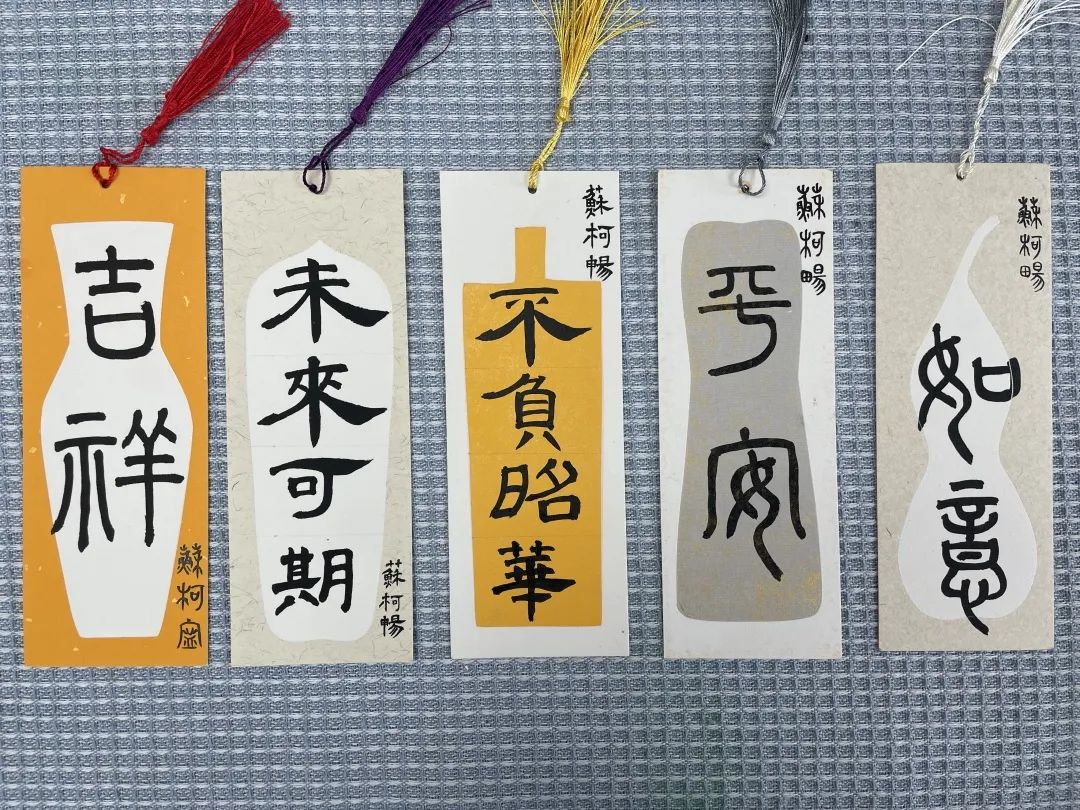 吉祥
蘇柯
未來可期
蘇柯暢
不負昭華
蘇柯暢
平安
蘇柯畼
如意
蘇柯畼